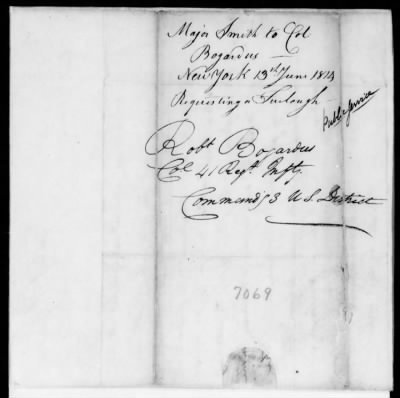 Major Smith to Col
Bogardus —
New York 13th June 1814
Requesting a Furlough
Public Service
Robt Bogardus
Col 41 Regt. Infty.
Command'g 3 U.S. District
7069